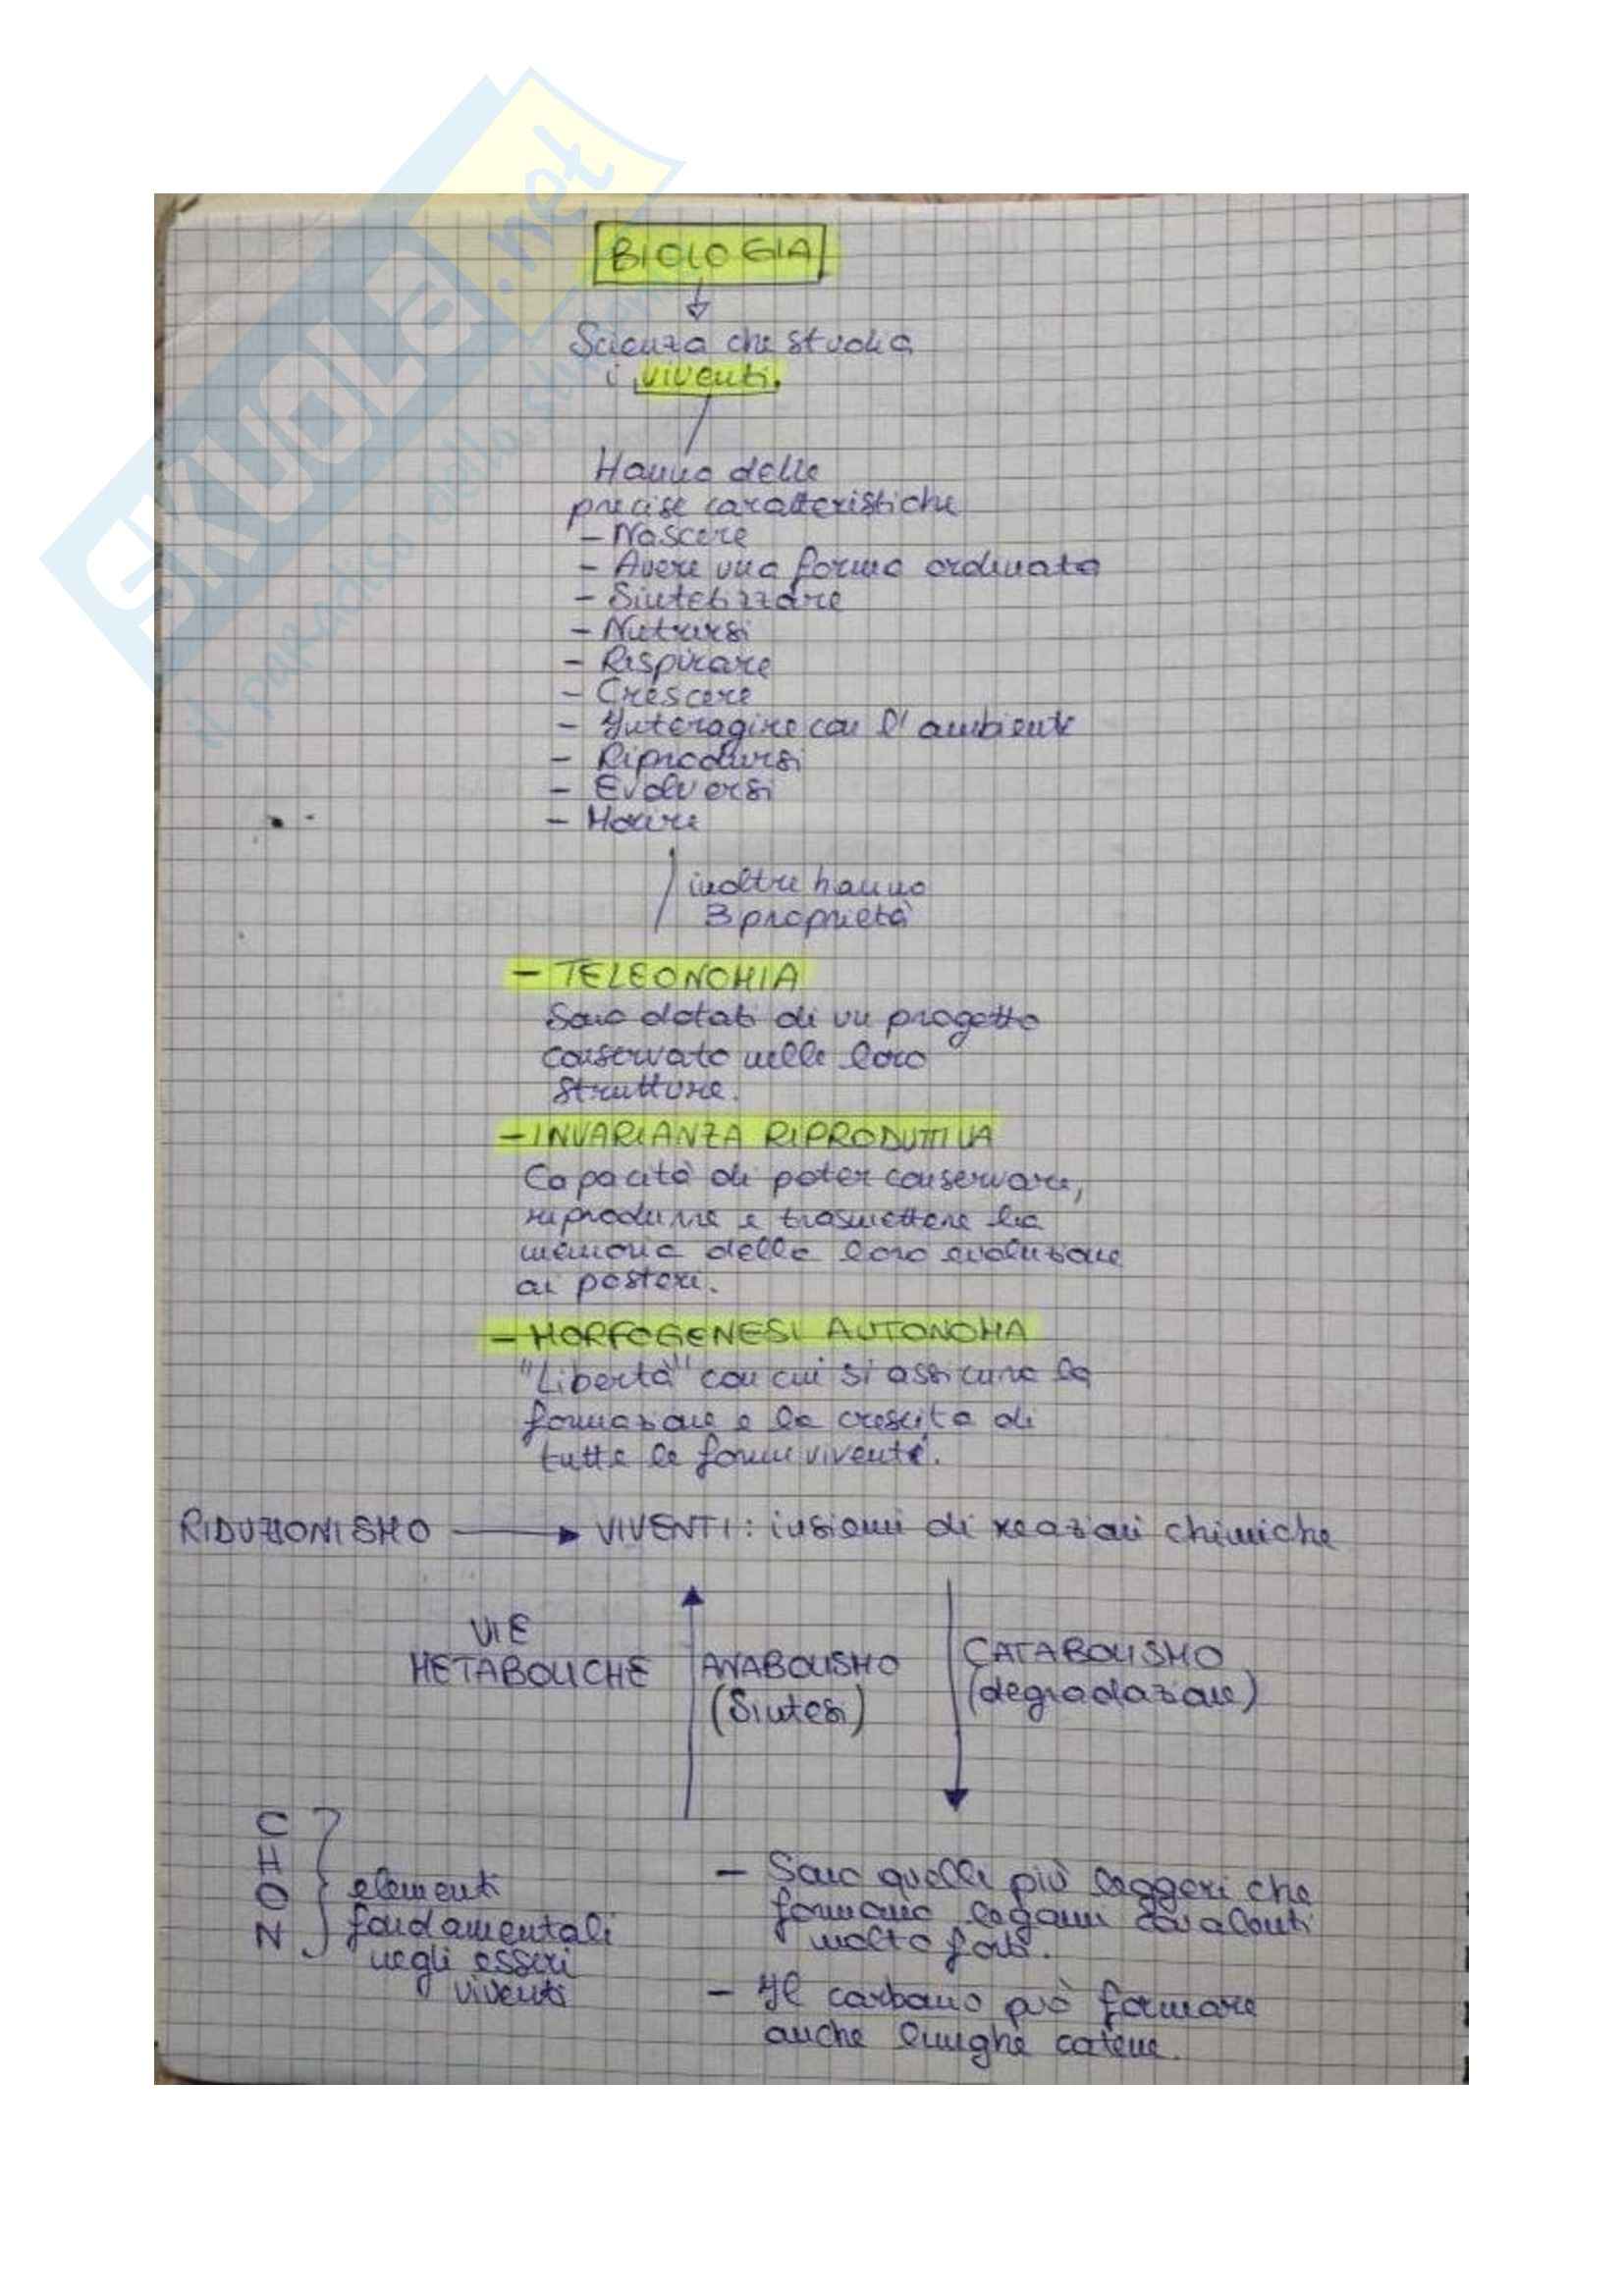 SKUOLA.net
il paradiso dello studente
BIOLOGIA
Scienza che studia
i viventi.
Hanno delle
precise caratteristiche
- Nascere
- Avere una forma ordinata
- Sintetizzare
- Nutrirsi
- Respirare
- Crescere
- Interagire con l'ambiente
- Riprodursi
- Evolversi
- Morire
inoltre hanno
3 proprietà
- TELEONOMIA
Sono dotati di un progetto
conservato nelle loro
strutture.
- INVARIANZA RIPRODUTTIVA
Capacità di poter conservare,
riprodurre e trasmettere la
memoria della loro evoluzione
ai posteri.
- MORFOGENESI AUTONOMA
"Libertà" con cui si assicura la
formazione e la crescita di
tutte le forme viventi.
RIDUZIONISMO → VIVENTI: insiemi di reazioni chimiche
VIE
METABOLICHE
ANABOLISMO
(Sintesi)
CATABOLISMO
(degradazione)
C
H
O
N
elementi
fondamentali
negli esseri
viventi
- Sono quelli più leggeri che
formano legami covalenti
molto forti.
- Il carbonio può formare
anche lunghe catene.